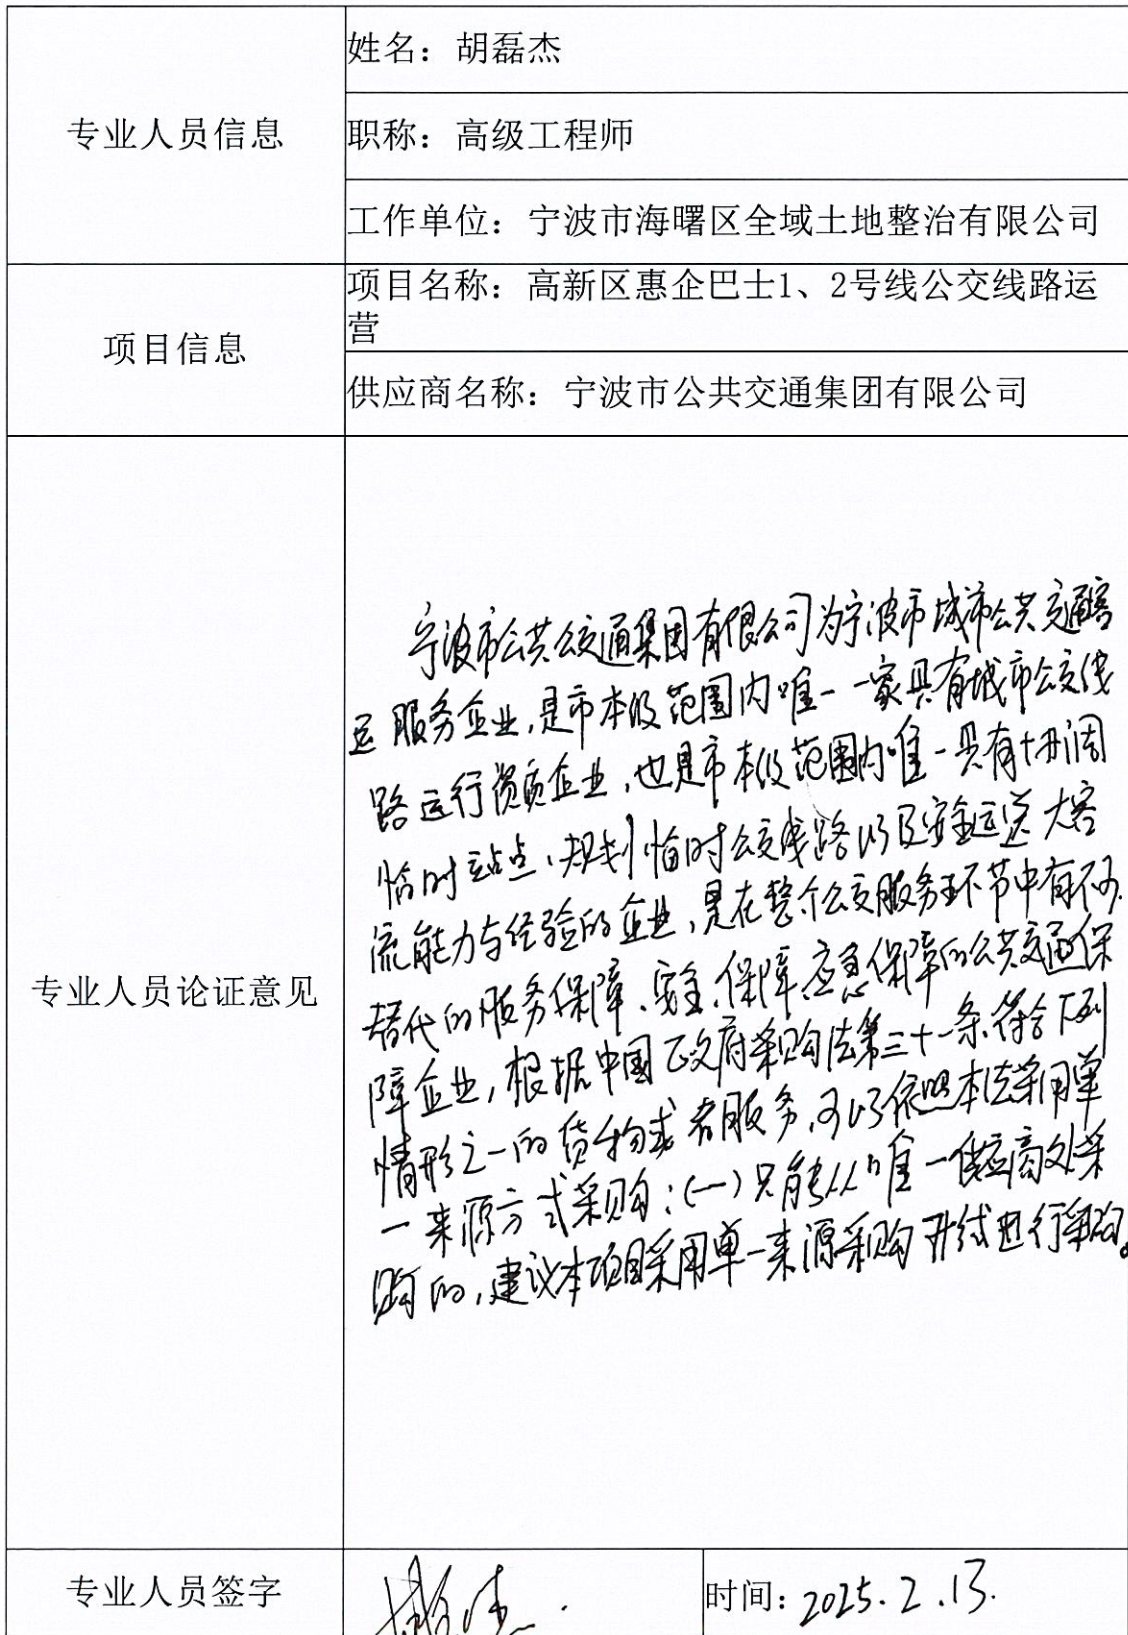 姓名：胡磊杰
专业人员信息
职称：高级工程师
工作单位：宁波市海曙区全域土地整治有限公司
项目名称：高新区惠企巴士1、2号线公交线路运
营
项目信息
供应商名称：宁波市公共交通集团有限公司
宁波市公共交通集团有限公司为宁波市城市公共交通客
运服务企业，是市本级范围内唯一一家具有城市公交线
路运行资质企业，也是市本级范围内唯一具有协调
临时站点、规划临时公交线路以及安全运送大客
流能力与经验的企业，是在整个公交服务环节中有不可
替代的服务保障、安全保障、应急保障的公共交通保
专业人员论证意见
障企业，根据中国政府采购法第三十一条符合下列
情形之一的货物或者服务，可以依照本法采用单
一来源方式采购：(一)只能从唯一供应商处采
购的，建议本项目采用单一来源采购形式进行采购。
专业人员签字
时间：2025.2.13.